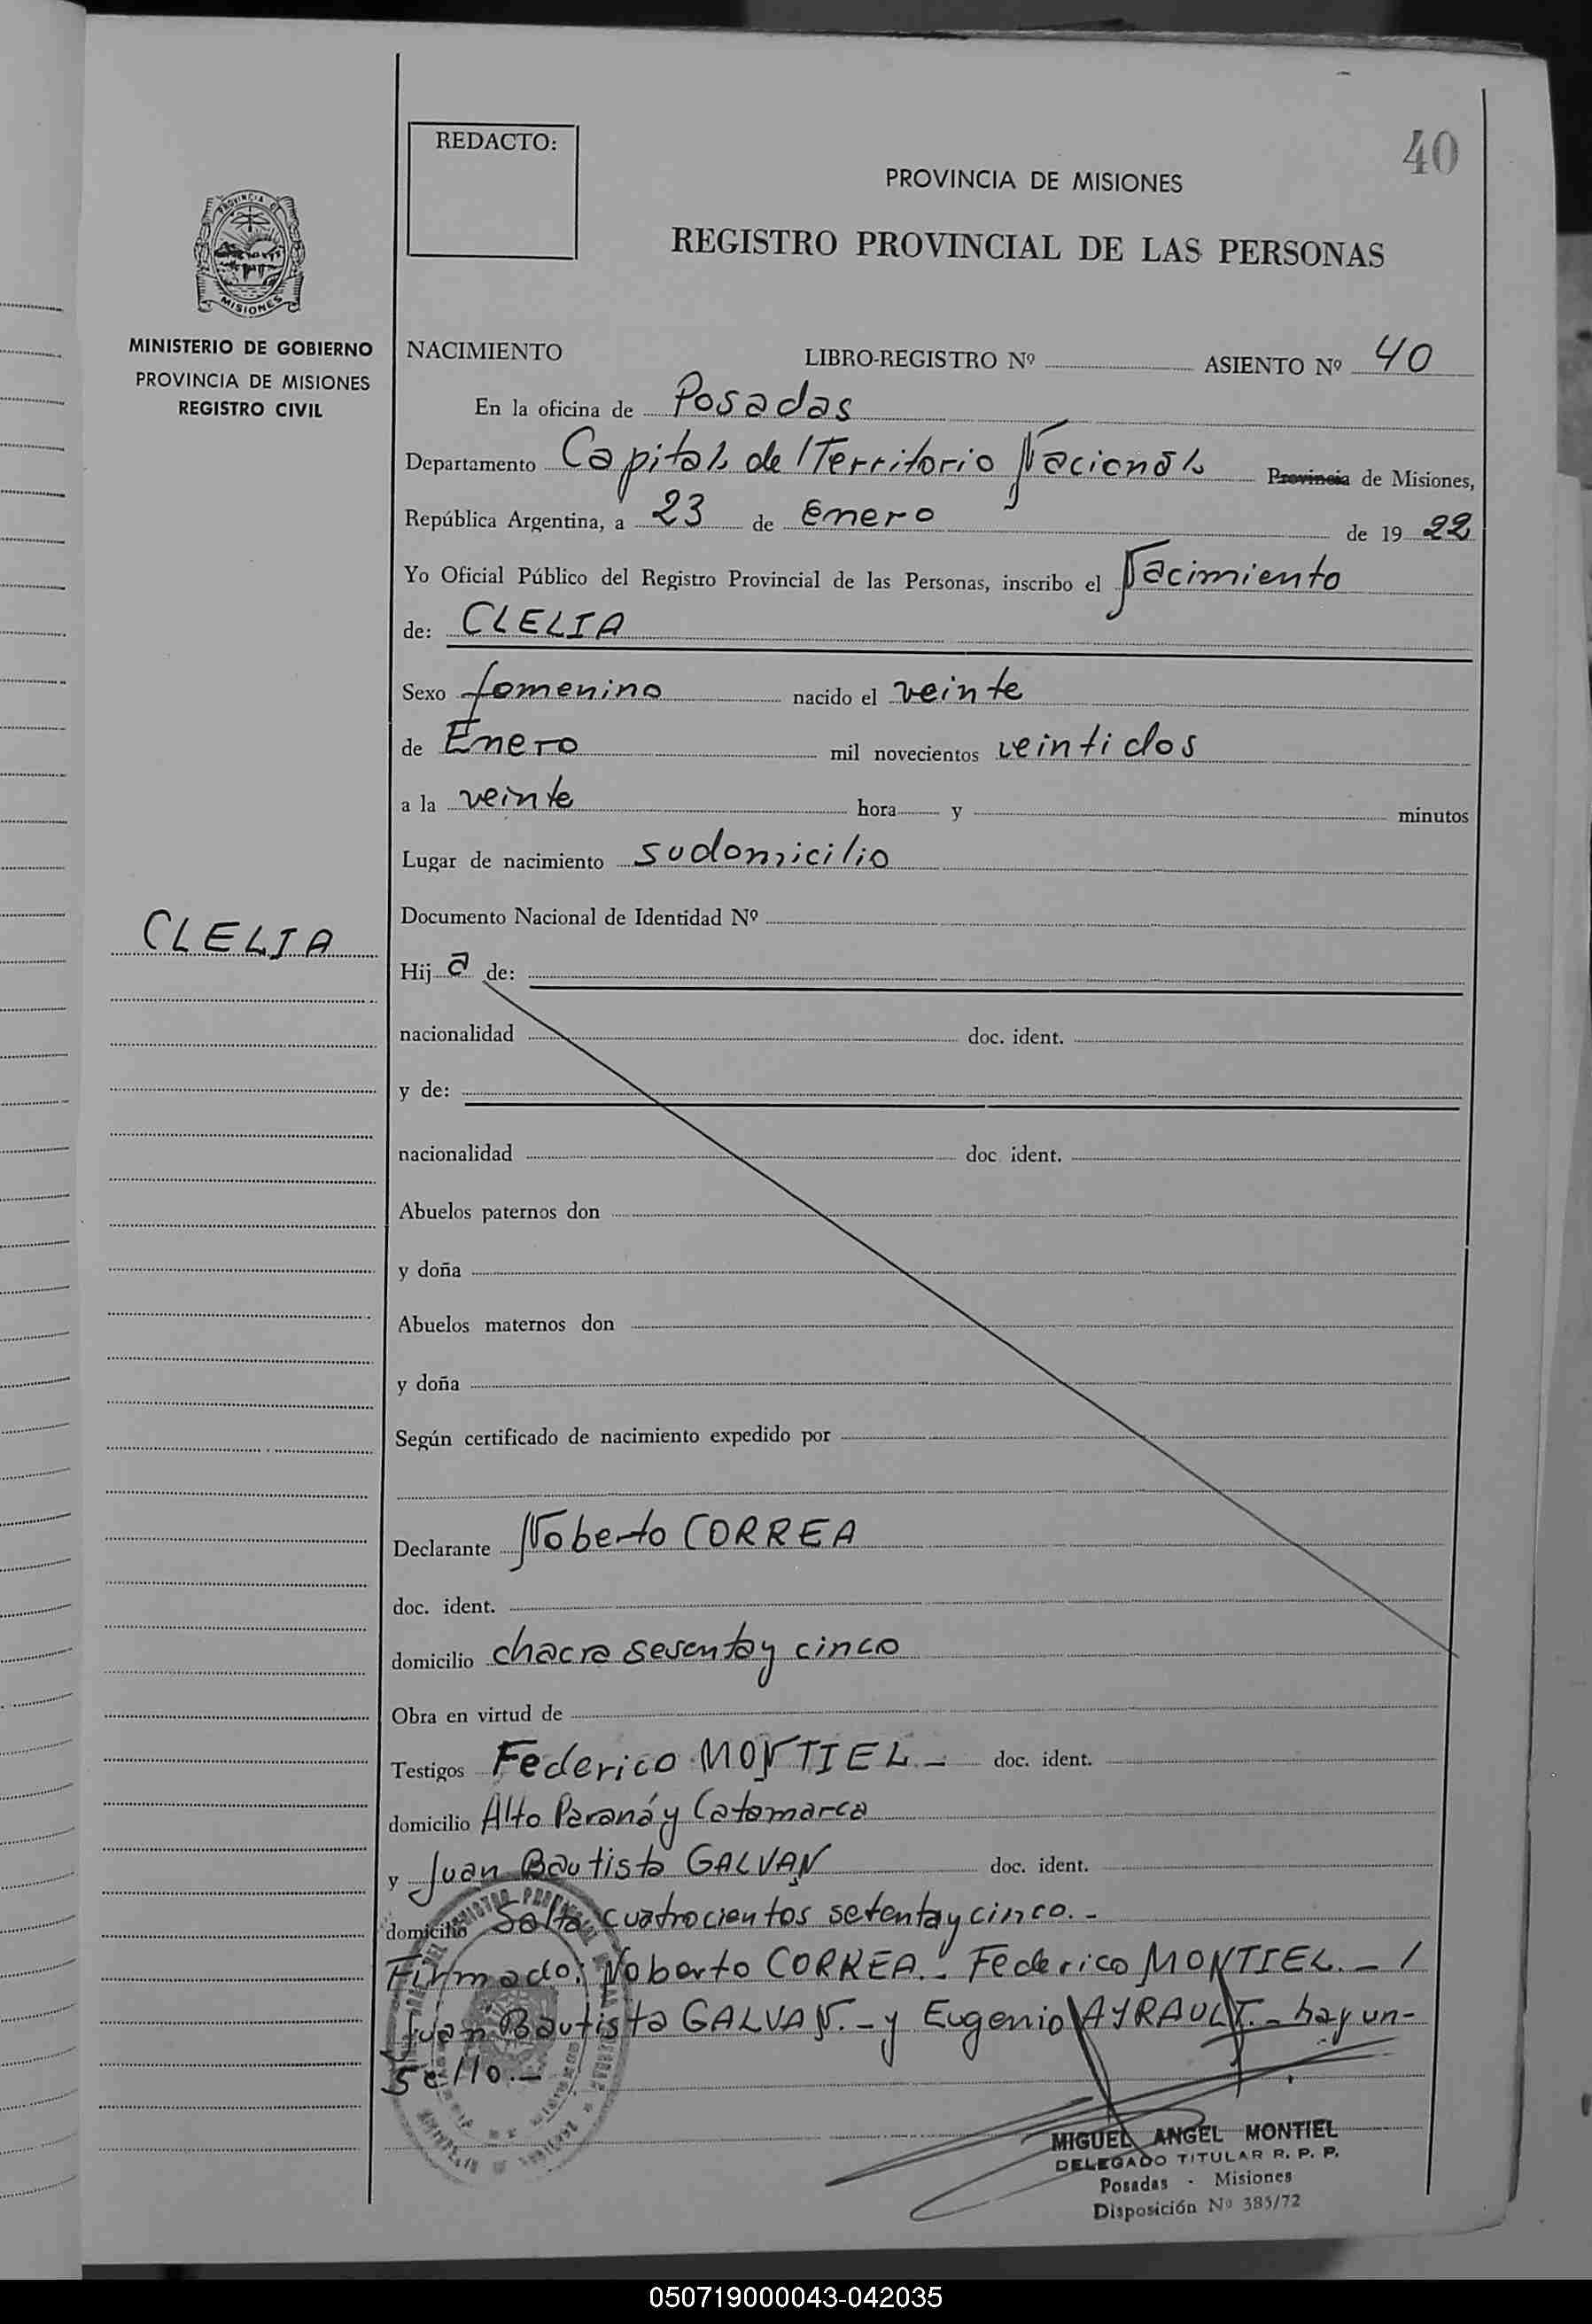 40
REDACTO:
PROVINCIA DE MISIONES
REGISTRO PROVINCIAL DE LAS PERSONAS
MISIONES
MINISTERIO DE GOBIERNO
PROVINCIA DE MISIONES
REGISTRO CIVIL
NACIMIENTO LIBRO-REGISTRO Nº ASIENTO Nº 40
En la oficina de Posadas
Departamento Capital, del Territorio Nacional, Provincia de Misiones,
República Argentina, a 23 de enero de 1922
Yo Oficial Público del Registro Provincial de las Personas, inscribo el Nacimiento
de: CLELIA
Sexo femenino nacido el veinte
de Enero mil novecientos veintidos
a la veinte hora y minutos
Lugar de nacimiento su domicilio
Documento Nacional de Identidad Nº
CLELIA
Hij a de:
nacionalidad doc. ident.
y de:
nacionalidad doc. ident.
Abuelos paternos don
y doña
Abuelos maternos don
y doña
Según certificado de nacimiento expedido por
Declarante Noberto CORREA
doc. ident.
domicilio chacra sesenta y cinco
Obra en virtud de
Testigos Federico MONTIEL.- doc. ident.
domicilio Alto Paraná y Catamarca
y Juan Bautista GALVAN doc. ident.
domicilio Salta cuatrocientos setenta y cinco.-
Firmado: Noberto CORREA.- Federico MONTIEL.- /
Juan Bautista GALVAN.- y Eugenio AYRAULT.- hay un-
sello.-
MIGUEL ANGEL MONTIEL
DELEGADO TITULAR R. P. P.
Posadas - Misiones
Disposición Nº 385/72
050719000043-042035